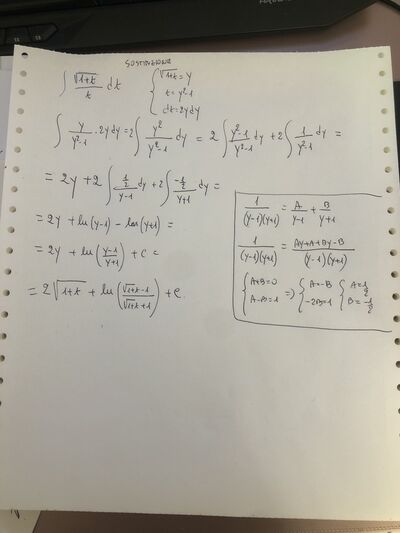 SOSTITUZIONE
∫ √(1+t)/t dt { √(1+t) = y
t = y²-1
dt = 2y dy
∫ y/(y²-1) · 2y dy = 2∫ y²/(y²-1) dy = 2∫ (y²-1)/(y²-1) dy + 2∫ 1/(y²-1) dy =
= 2y + 2∫ (1/2)/(y-1) dy + 2∫ (-1/2)/(y+1) dy =
= 2y + ln(y-1) - ln(y+1) =
= 2y + ln((y-1)/(y+1)) + c =
= 2√(1+t) + ln((√(1+t)-1)/(√(1+t)+1)) + c
1/((y-1)(y+1)) = A/(y-1) + B/(y+1)
1/((y-1)(y+1)) = (Ay+A+By-B)/((y-1)(y+1))
{ A+B=0 { A=-B { A=1/2
A-B=1 => -2B=1 B=-1/2